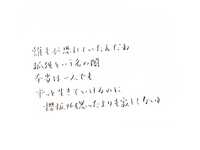 誰もが恐れていたんだね
孤独という名の闇
本当は一人でも
やっと生きていけるのに
想ったよりも寂しくないよ